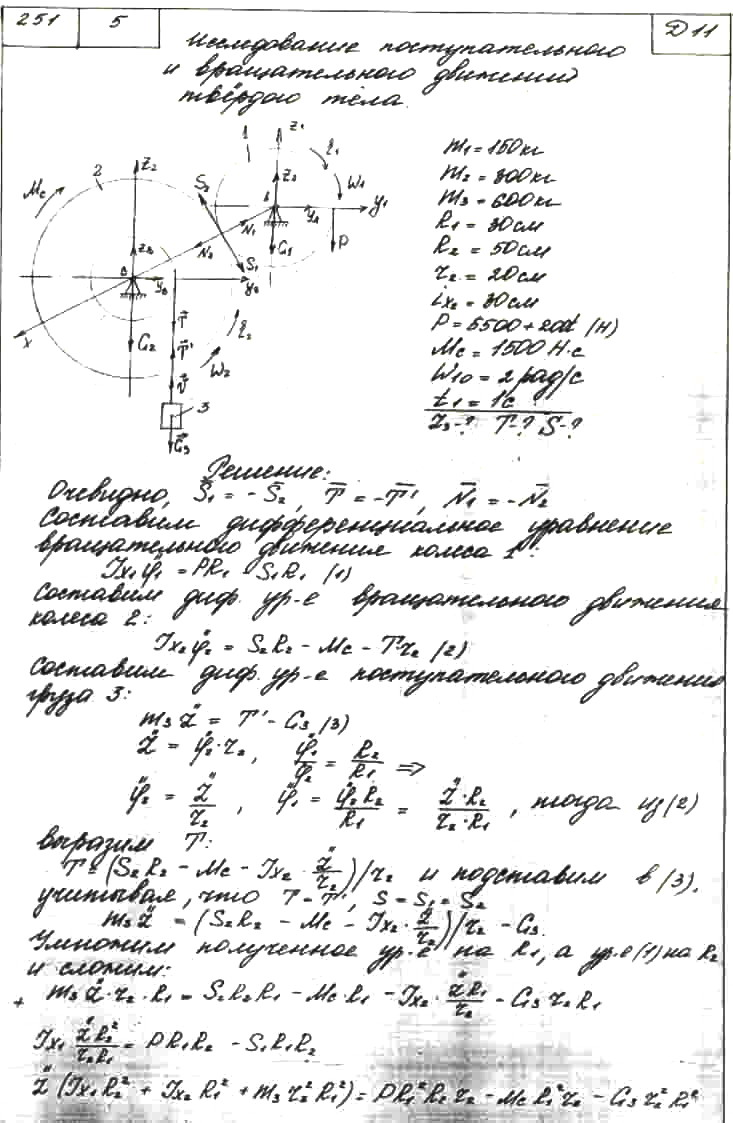 251 5 Д 11
Исследование поступательного
и вращательного движений
твёрдого тела.
m1 = 150 кг
m2 = 300 кг
m3 = 600 кг
R1 = 30 см
R2 = 50 см
r2 = 20 см
ix2 = 30 см
P = 5500 + 200t (Н)
Mc = 1500 Н·с
W10 = 2 рад/с
t1 = 1с
Z3-? T-? S-?
1
z1
2
z2
Mc
S2
W1
y1
N1
G1
P
N2
S1
G2
x
T
T'
W2
V
3
G3
Решение:
Очевидно, S̄1 = -S̄2, T̄ = -T̄', N̄1 = -N̄2
Составим дифференциальное уравнение
вращательного движения колеса 1:
Jx1 φ̈1 = PR1 - S1R1 (1)
Составим диф. ур-е вращательного движения
колеса 2:
Jx2 φ̈2 = S2R2 - Mc - Tr2 (2)
Составим диф. ур-е поступательного движения
груза 3:
m3 z̈ = T' - G3 (3)
z̈ = φ̈2·r2, φ̈1/φ̈2 = R2/R1 =>
φ̈2 = z̈/r2, φ̈1 = φ̈2R2/R1 = z̈·R2/r2·R1, тогда из (2)
выразим T:
T = (S2R2 - Mc - Jx2·z̈/r2)/r2 и подставим в (3),
учитывая, что T = T', S = S1 = S2
m3 z̈ = (S2R2 - Mc - Jx2·z̈/r2)/r2 - G3.
Умножим полученное ур-е на R1, а ур-е (1) на R2
и сложим:
+ m3 z̈·r2·R1 = S2R2R1 - McR1 - Jx2·z̈R1/r2 - G3r2R1
Jx1 z̈R2²/r2R1 = PR1R2 - S1R1R2
z̈(Jx1R2² + Jx2R1² + m3r2²R1²) = PR1²R2r2 - McR1²r2 - G3r2²R1²